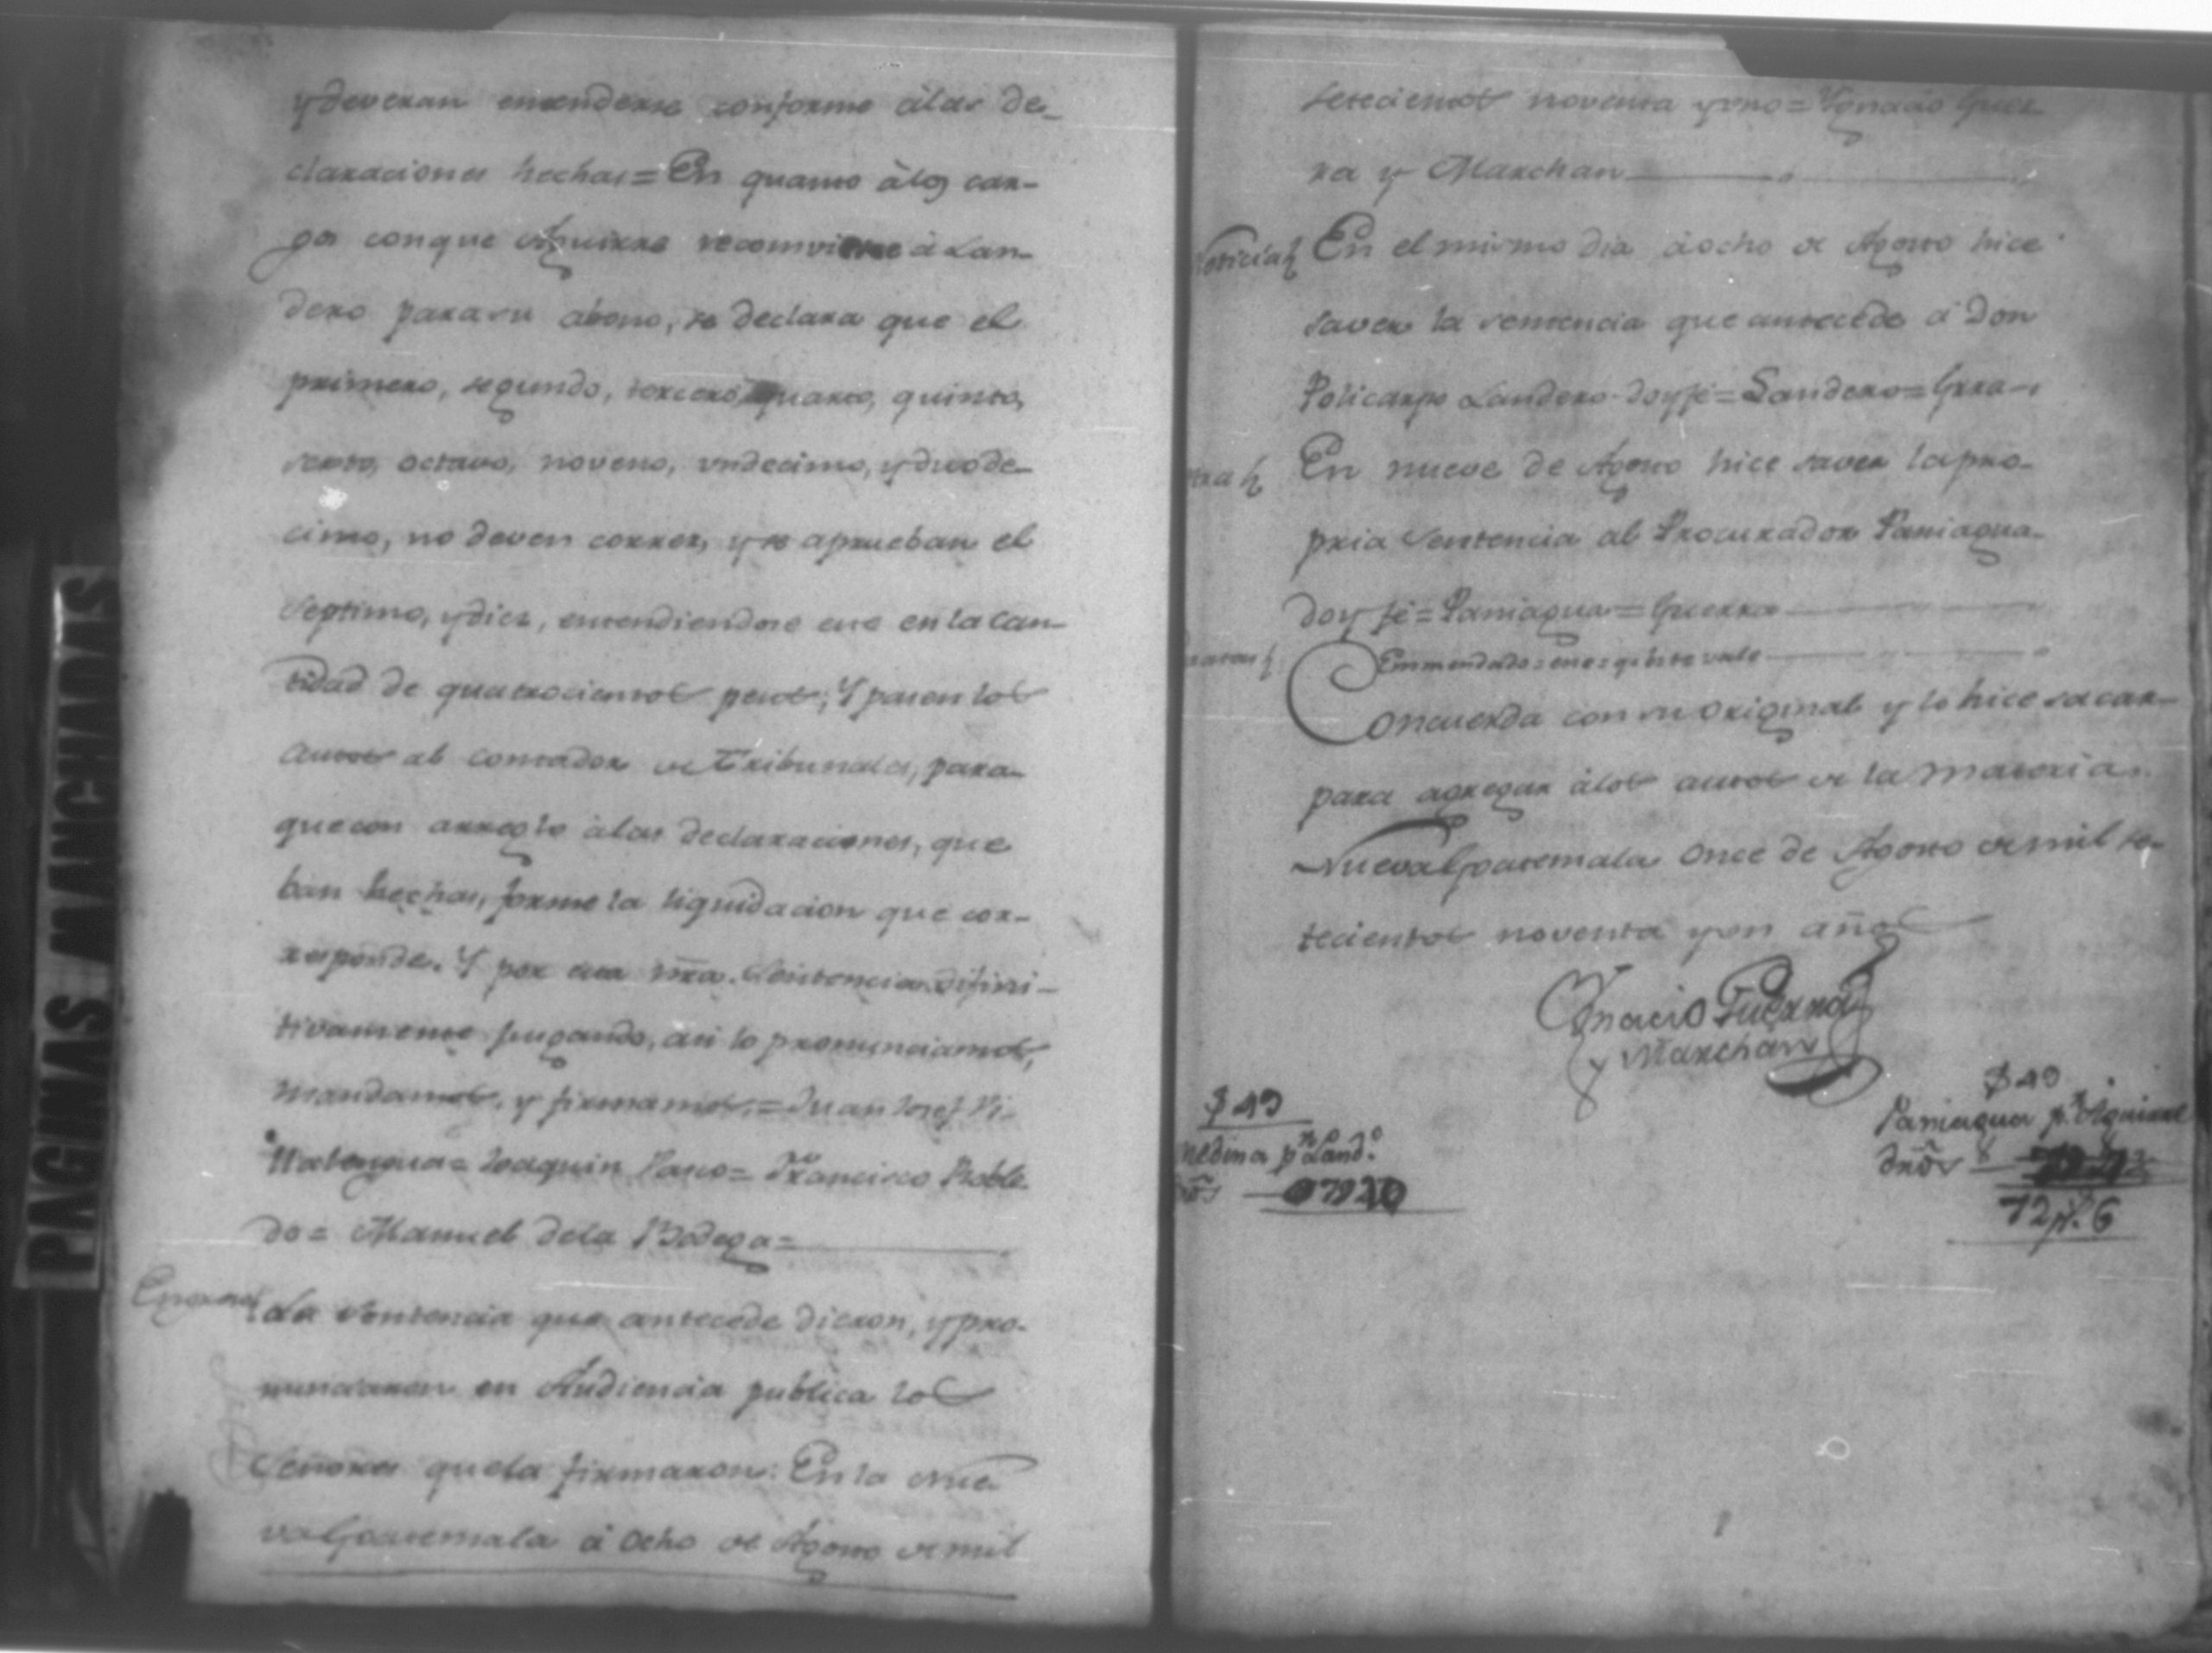 PAGINAS MANCHADAS
y deveran entenderse conforme â las de-
claraciones hechas = En quanto â los car-
gos con que Aguirre reconviene â Lan-
dero para su abono, se declara que el
primero, segundo, tercero, quarto, quinto,
sexto, octavo, noveno, undecimo, y duode-
cimo, no deven correr, y se aprueban el
septimo, y diez, entendiendose ese en la can-
tidad de quatrocientos pesos; Y pasen los
autos al contador de tribunales, para
que con arreglo â las declaraciones, que
ban hechas, forme la liquidacion que cor-
responde. Y por esta nrã. Sentencia difini-
tivamente jusgando, asi lo pronunciamos,
mandamos, y firmamos = Juan Josef Vi-
llalengua = Joaquin Vasco = Francisco Roble-
do = Manuel de la Bodega =
La sentencia que antecede dieron, y pro-
nunciaron en Audiencia publica los
Señores que la firmaron: En la Nue-
va Goatemala â ocho de Agosto de mil
setecientos noventa y uno = Ygnacio Guer-
ra y Marchan
Noticia En el mismo dia â ocho de Agosto hice
saver la sentencia que antecede â Don
Policarpo Landero doy fé = Landero = Grra
otra En nueve de Agosto hice saver la pro-
pria Sentencia al Procurador Paniagua
doy fé = Paniagua = Guerra
Emmendado = ene = q. este vale
Concuerda con su original y lo hice sacar
para agregar â los autos de la materia.
Nueva Goatemala once de Agosto de mil se-
tecientos noventa y un años
Ignacio Guerra
y Marchan
$ 49
Medina p.r Land.o
$ 49
Paniagua p.r Aguirre
dr̃os
72 p.s 6